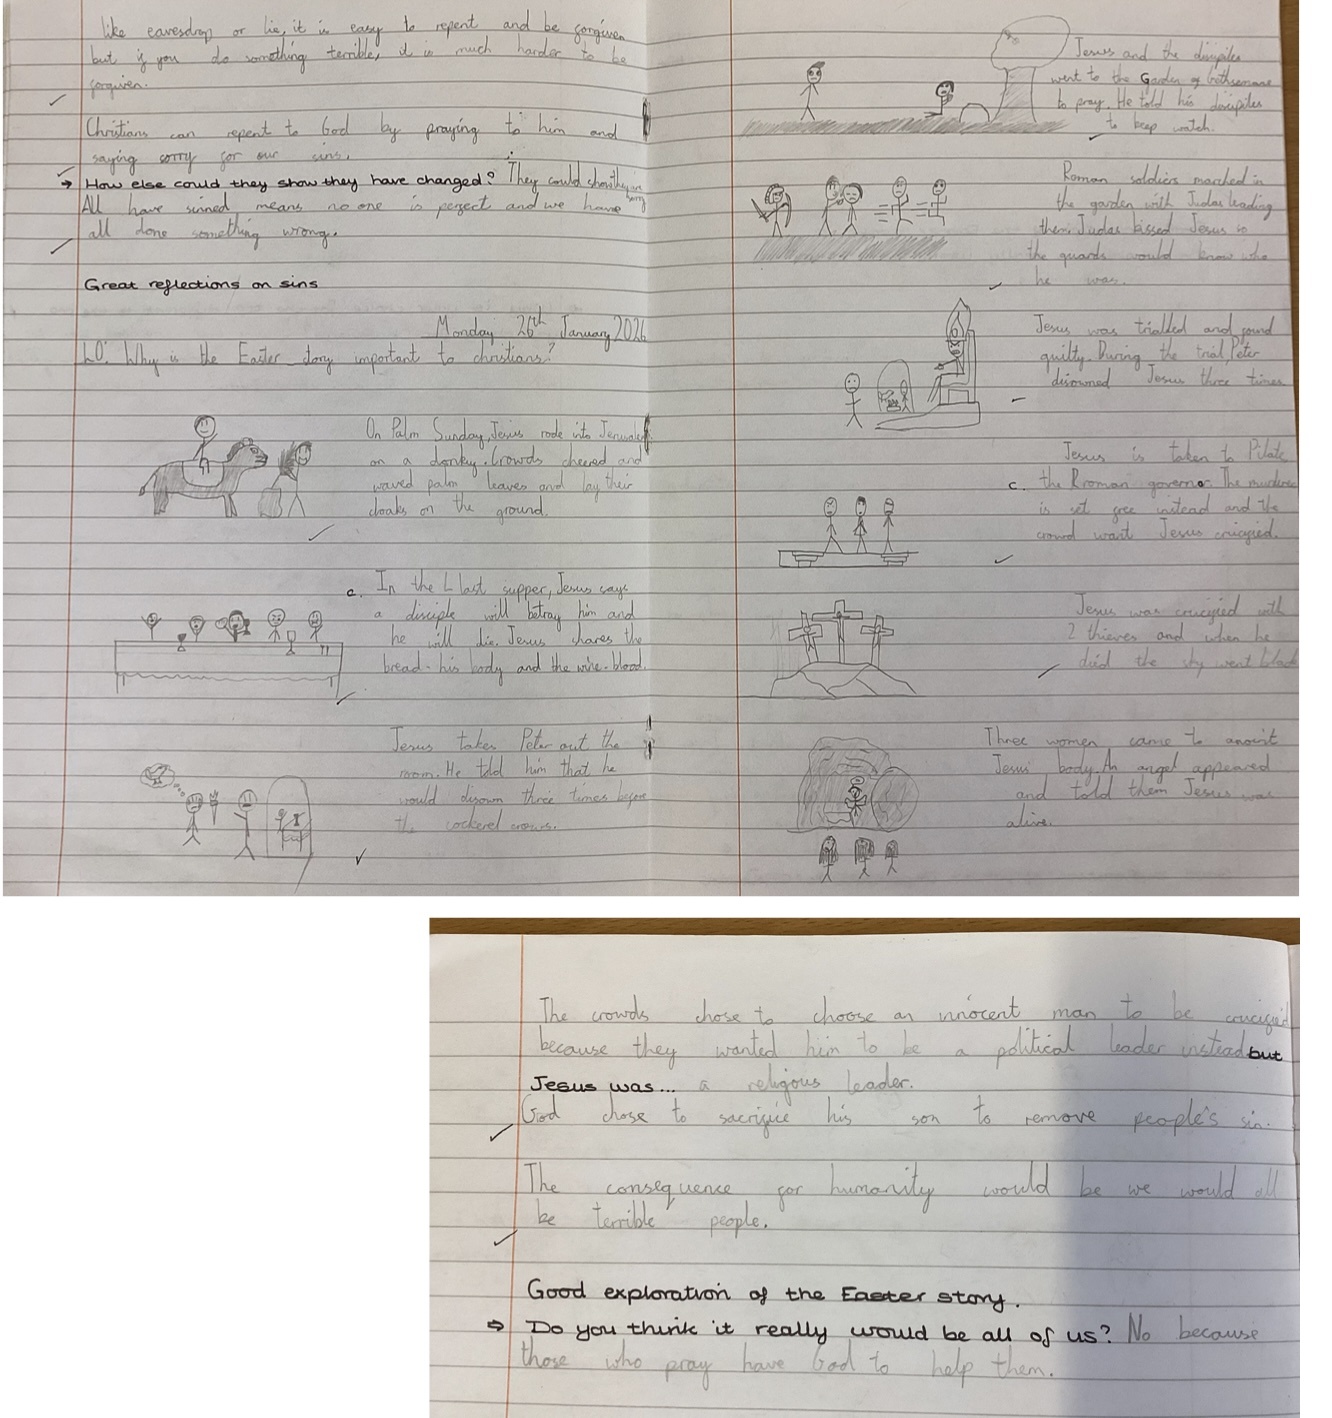 like eavesdrop or lie, it is easy to repent and be forgiven
but if you do something terrible, it is much harder to be
forgiven.
Christians can repent to God by praying to him and
saying sorry for our sins.
→ How else could they show they have changed? They could show they are
sorry
All have sinned means no one is perfect and we have
all done something wrong.
Great reflections on sins
Monday 26th January 2026
LO: Why is the Easter story important to christians?
On Palm Sunday, Jesus rode into Jerusalem
on a donky. Crowds cheered and
waved palm leaves and lay their
cloaks on the ground.
c. In the L last supper, Jesus says
a disciple will betray him and
he will die. Jesus shares the
bread - his body and the wine - blood.
Jesus takes Peter out the
room. He told him that he
would disown three times before
the cockerel crows.
Jesus and the disciples
went to the Garden of Gethsemane
to pray. He told his disciples
to keep watch.
Roman soldiers marched in
the garden with Judas leading
them. Judas kissed Jesus so
the guards would know who
he was.
Jesus was trialled and found
guilty. During the trial, Peter
disowned Jesus three times
Jesus is taken to Pilate
c. the Rroman governor. The murderer
is set free instead and the
crowd want Jesus crucified.
Jesus was crucified with
2 thieves and when he
died the sky went black
Three women came to anoint
Jesus' body. An angel appeared
and told them Jesus was
alive.
The crowds chose to choose an innocent man to be crucified
because they wanted him to be a political leader instead but
Jesus was... a religious leader.
God chose to sacrifice his son to remove people's sin.
The consequence for humanity would be we would all
be terrible people.
Good exploration of the Easter story.
⇒ Do you think it really would be all of us? No because
those who pray have God to help them.